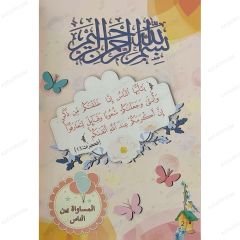 بسم الله الرحمن الرحيم
يا أيها الناس إنا خلقناكم من ذكر
وأنثى وجعلناكم شعوبا وقبائل لتعارفوا
إن أكرمكم عند الله أتقاكم
الحجرات: ١٣
المساواة بين
الناس